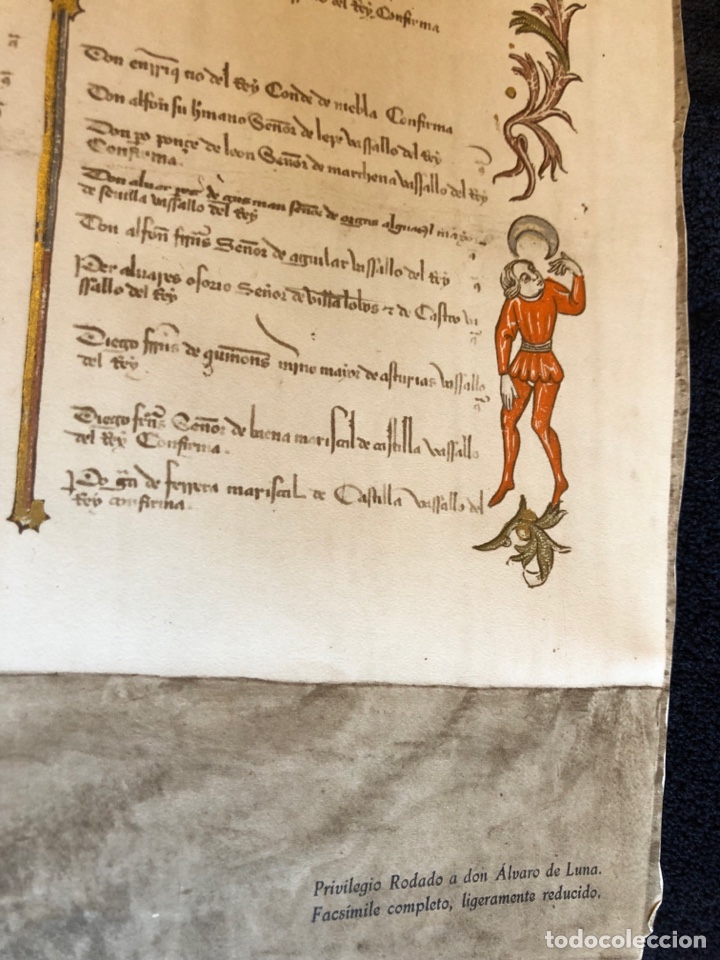 del Rey Confirma
Don enrriq tio del Rey Conde de niebla Confirma
Don alfon su hmano Señor de lepe vassallo del Rey
Don po ponçe de leon Señor de marchena vassallo del Rey
Confirma
Don aluar de gusman señor de orgas alguazil mayor
de seuilla vassallo del Rey
Don alfon Señor de aguilar vassallo del Rey
Per aluares osorio Señor de villalobos & de Castro va
ssallo del Rey
Diego de quinones mino mayor de asturias vassallo
del Rey
Diego Señor de baena mariscal de castilla vassallo
del Rey Confirma.
Po de ferrera mariscal de Castilla vassallo del
Rey confirma.
Privilegio Rodado a don Álvaro de Luna.
Facsímile completo, ligeramente reducido.
todocoleccion